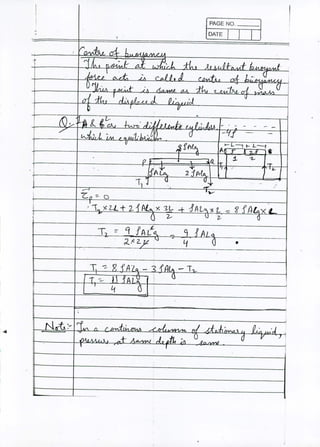 PAGE NO.
DATE
Centre of buoyancy
The point at which the resultant buoyant
force acts is called centre of buoyancy
This point is same as the centre of mass
of the displaced liquid
Q:- A & B are two different cylinder
which in equilibrium
4ρ
8ρALg
A ρ 2ρ B
1 2
P Q
T₁ T₂
ρALg 2ρALg
T₁ T₂
Στp = 0
T₂×2L + 2ρALg × 3L/2 + ρALg × L/2 = 8ρALg × L
T₂ = 9ρALg/2×2 = 9ρALg/4
T₁ = 8ρALg - 3ρALg - T₂
T₁ = 11ρALg/4
Note:- In a continous column of stationary liquid,
pressure at same depth is same.